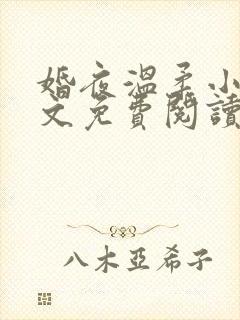 婚夜溫柔小
文免費閱讀
八木亞希子